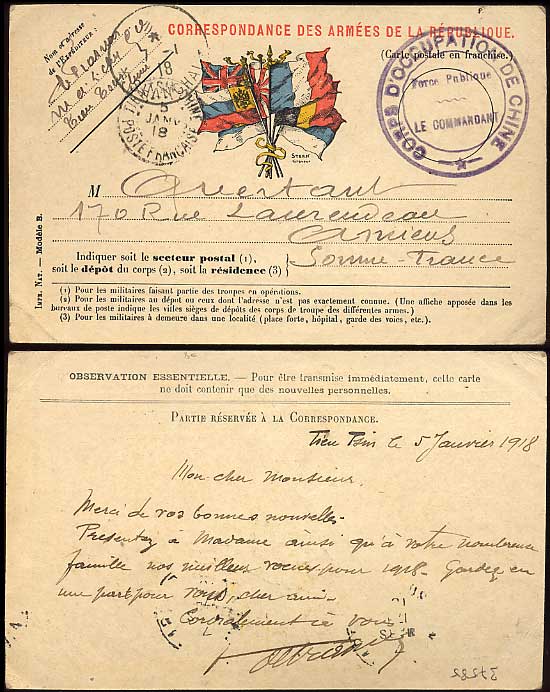 CORRESPONDANCE DES ARMÉES DE LA RÉPUBLIQUE.
(Carte postale en franchise.)
Nom et Adresse
de l'Expéditeur :
CORPS D'OCCUPATION DE CHINE
Force Publique
LE COMMANDANT
CHINE
5
JANV
18
POSTE FRANÇAISE
STERN
M
170 Rue Laurendeau
Amiens
Somme - France
Indiquer soit le secteur postal (1),
soit le dépôt du corps (2), soit la résidence (3)
Impr. Nat. — Modèle B.
(1) Pour les militaires faisant partie des troupes en opérations.
(2) Pour les militaires au dépôt ou ceux dont l'adresse n'est pas exactement connue. (Une affiche apposée dans les
bureaux de poste indique les villes sièges de dépôts des corps de troupe des différentes armes.)
(3) Pour les militaires à demeure dans une localité (place forte, hôpital, garde des voies, etc.).
OBSERVATION ESSENTIELLE. — Pour être transmise immédiatement, cette carte
ne doit contenir que des nouvelles personnelles.
PARTIE RÉSERVÉE À LA CORRESPONDANCE.
Tien Tsin le 5 Janvier 1918
Mon cher Monsieur,
Merci de vos bonnes nouvelles.
Présentez à Madame ainsi qu'à votre nombreuse
famille nos meilleurs voeux pour 1918 - Gardez en
une part pour vous, cher ami.
Cordialement à vous
37582